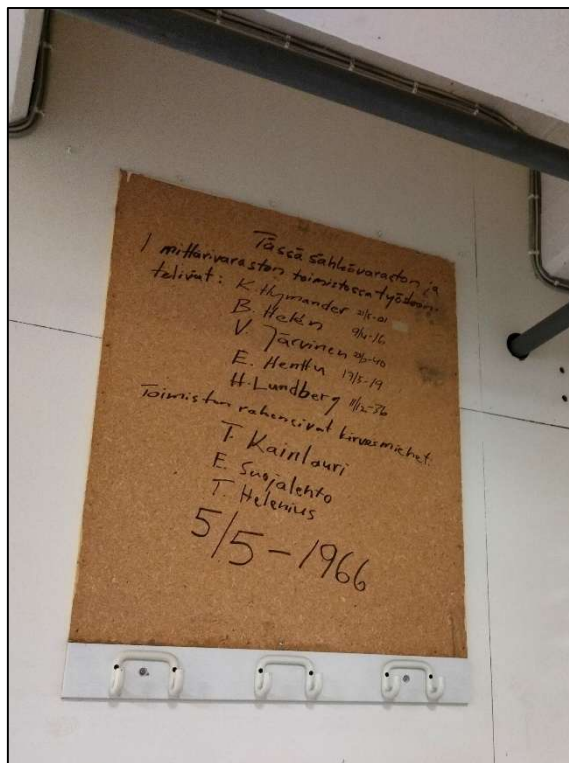 Tässä sähkövaraston ja
mittarivaraston toimistossa työsken-
telivät: K. Hymander
B. Helén 9/4-16
V. Järvinen
E. Henttu 17/3-19
H. Lundberg 11/12-36
Toimiston rakensivat kirvesmiehet:
T. Kainlauri
E. Suojalehto
T. Helenius
5/5-1966